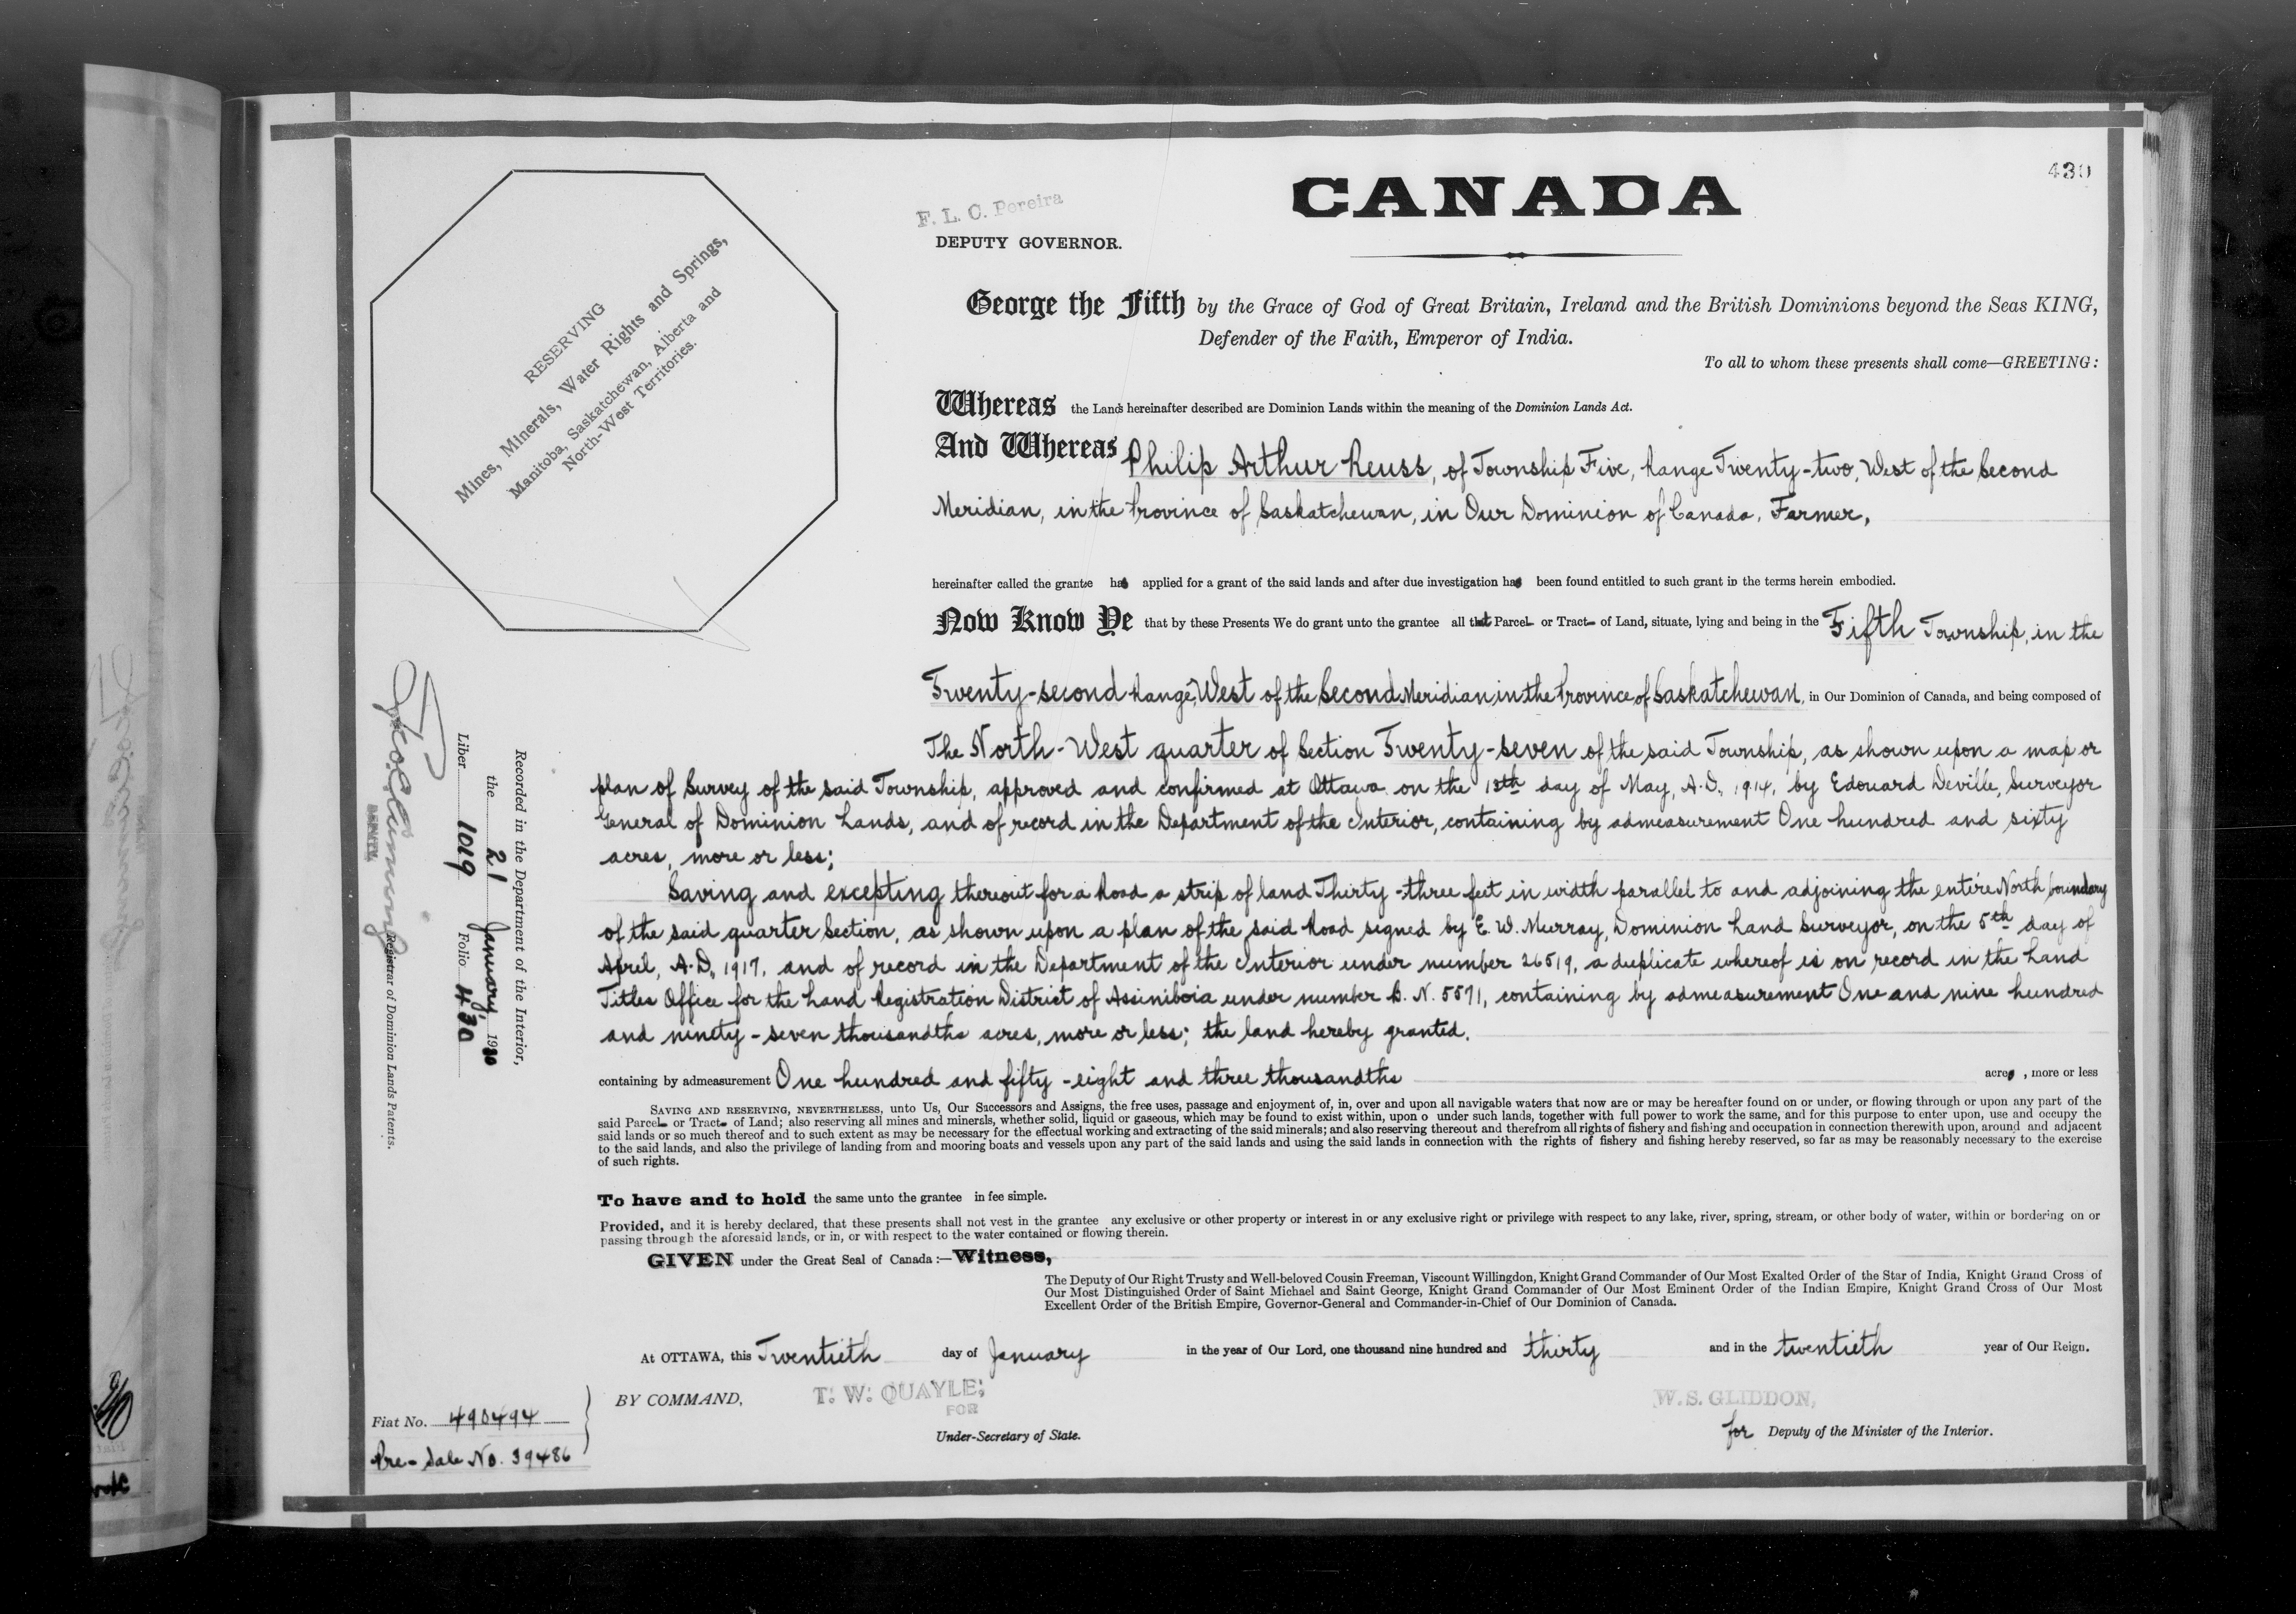 430
CANADA
F. L. C. Pereira
DEPUTY GOVERNOR.
RESERVING
Mines, Minerals, Water Rights and Springs,
Manitoba, Saskatchewan, Alberta and
North-West Territories.
George the Fifth by the Grace of God of Great Britain, Ireland and the British Dominions beyond the Seas KING,
Defender of the Faith, Emperor of India.
To all to whom these presents shall come—GREETING:
Whereas the Lands hereinafter described are Dominion Lands within the meaning of the Dominion Lands Act.
And Whereas Philip Arthur Reuss, of Township Five, Range Twenty-two, West of the Second
Meridian, in the Province of Saskatchewan, in Our Dominion of Canada, Farmer,
hereinafter called the grantee has applied for a grant of the said lands and after due investigation has been found entitled to such grant in the terms herein embodied.
Now Know Ye that by these Presents We do grant unto the grantee all that Parcel or Tract of Land, situate, lying and being in the Fifth Township, in the
Twenty-second Range, West of the Second Meridian in the Province of Saskatchewan, in Our Dominion of Canada, and being composed of
The North-West quarter of Section Twenty-seven of the said Township, as shown upon a map or
plan of Survey of the said Township, approved and confirmed at Ottawa on the 13th day of May, A.D., 1914, by Edouard Deville, Surveyor
General of Dominion Lands, and of record in the Department of the Interior, containing by admeasurement One hundred and sixty
acres, more or less;
Saving and excepting thereout for a Road a strip of land Thirty-three feet in width parallel to and adjoining the entire North boundary
of the said quarter Section, as shown upon a plan of the said Road signed by E. W. Murray, Dominion Land Surveyor, on the 5th day of
April, A.D., 1917, and of record in the Department of the Interior under number 26519, a duplicate whereof is on record in the Land
Titles Office for the Land Registration District of Assiniboia under number B. N. 5571, containing by admeasurement One and nine hundred
and ninety-seven thousandths acres, more or less; the land hereby granted.
containing by admeasurement One hundred and fifty-eight and three thousandths acres, more or less
SAVING AND RESERVING, NEVERTHELESS, unto Us, Our Successors and Assigns, the free uses, passage and enjoyment of, in, over and upon all navigable waters that now are or may be hereafter found on or under, or flowing through or upon any part of the
said Parcel or Tract of Land; also reserving all mines and minerals, whether solid, liquid or gaseous, which may be found to exist within, upon o under such lands, together with full power to work the same, and for this purpose to enter upon, use and occupy the
said lands or so much thereof and to such extent as may be necessary for the effectual working and extracting of the said minerals; and also reserving thereout and therefrom all rights of fishery and fishing and occupation in connection therewith upon, around and adjacent
to the said lands, and also the privilege of landing from and mooring boats and vessels upon any part of the said lands and using the said lands in connection with the rights of fishery and fishing hereby reserved, so far as may be reasonably necessary to the exercise
of such rights.
To have and to hold the same unto the grantee in fee simple.
Provided, and it is hereby declared, that these presents shall not vest in the grantee any exclusive or other property or interest in or any exclusive right or privilege with respect to any lake, river, spring, stream, or other body of water, within or bordering on or
passing through the aforesaid lands, or in, or with respect to the water contained or flowing therein.
GIVEN under the Great Seal of Canada:—Witness,
The Deputy of Our Right Trusty and Well-beloved Cousin Freeman, Viscount Willingdon, Knight Grand Commander of Our Most Exalted Order of the Star of India, Knight Grand Cross of
Our Most Distinguished Order of Saint Michael and Saint George, Knight Grand Commander of Our Most Eminent Order of the Indian Empire, Knight Grand Cross of Our Most
Excellent Order of the British Empire, Governor-General and Commander-in-Chief of Our Dominion of Canada.
At OTTAWA, this Twentieth day of January in the year of Our Lord, one thousand nine hundred and thirty and in the twentieth year of Our Reign.
BY COMMAND,
T. W. QUAYLE,
FOR
Under-Secretary of State.
W. S. GLIDDON,
for Deputy of the Minister of the Interior.
Fiat No. 490494
Pre-Sale No. 39486
Recorded in the Department of the Interior,
the 21 January, 1930
Liber 1019 Folio 430
DEPUTY
Registrar of Dominion Lands Patents.